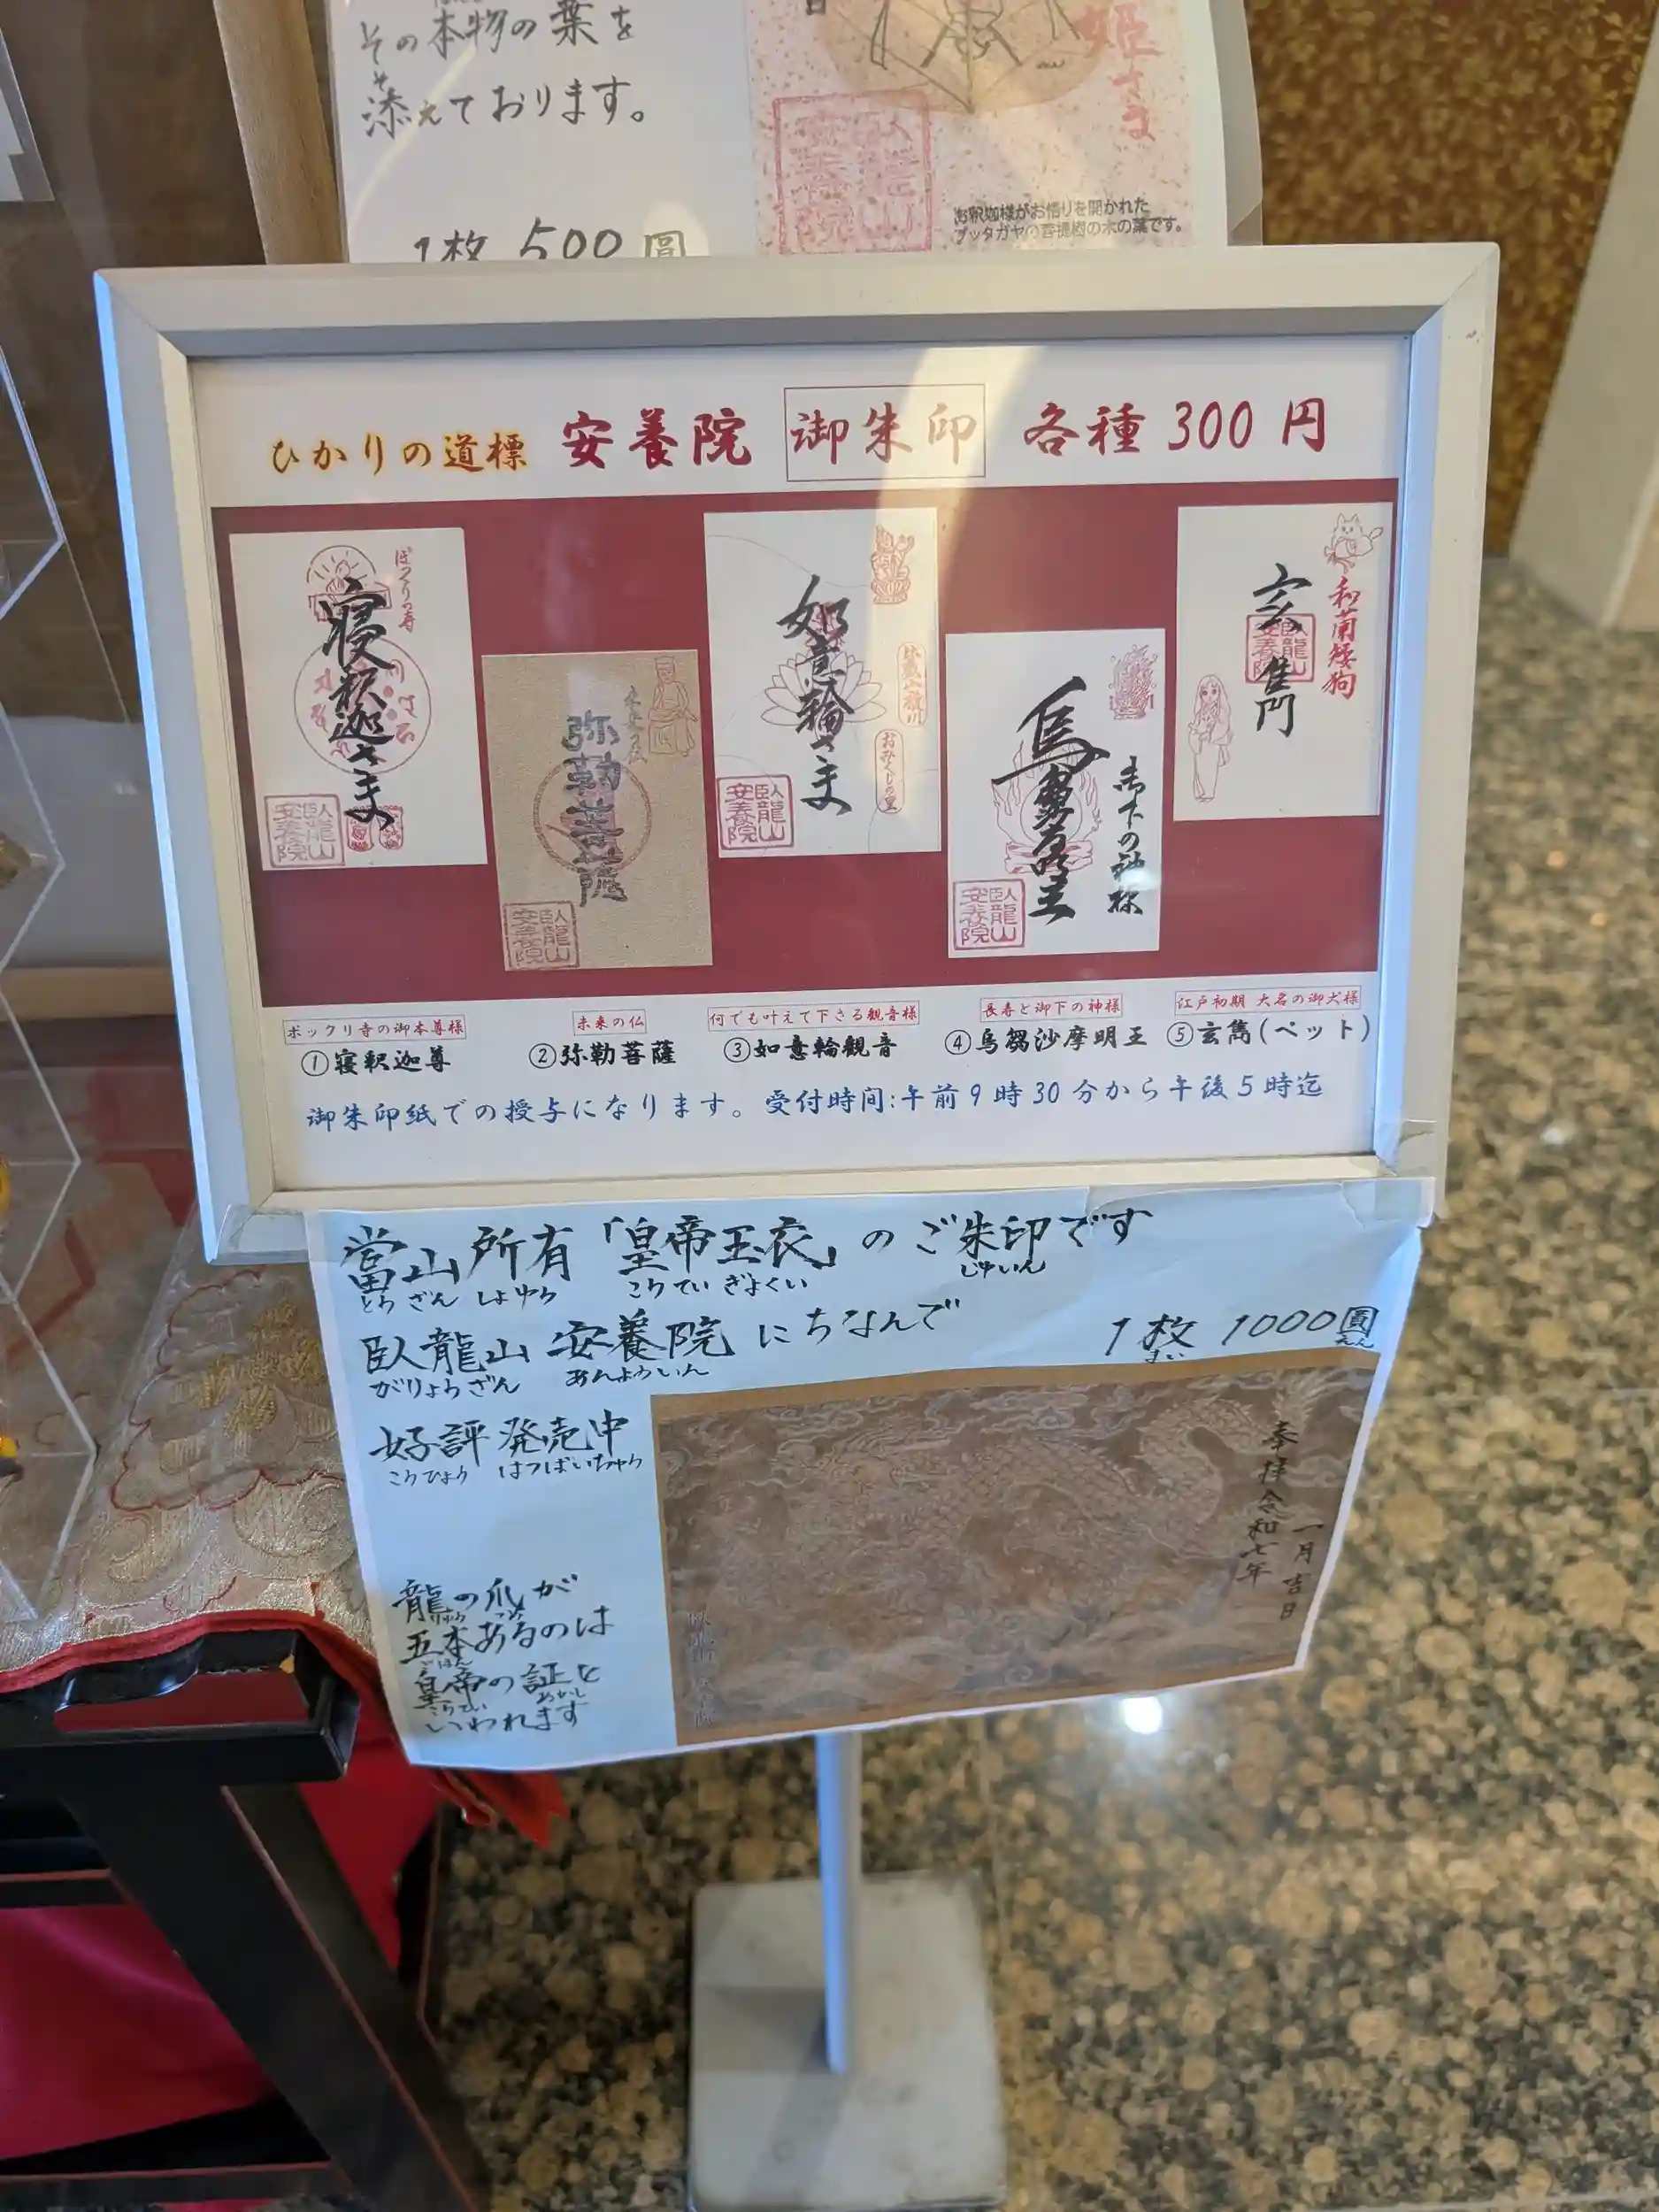 その本物の葉を
添えております。
1枚 500圓
姫さま
お釈迦様がお悟りを開かれた
ブッタガヤの菩提樹の木の葉です。
ひかりの道標 安養院 御朱印 各種 300 円
ぽっくり寺
寝釈迦さま
臥龍山
安養院
弥勒菩薩
臥龍山
安養院
如意輪さま
おみくじの里
臥龍山
安養院
御下の神様
臥龍山
安養院
和蘭矮狗
臥龍山
安養院
ポックリ寺の御本尊様
①寝釈迦尊
未来の仏
②弥勒菩薩
何でも叶えて下さる観音様
③如意輪観音
長寿と御下の神様
④烏芻沙摩明王
江戸初期 大名の御犬様
⑤玄雋(ペット)
御朱印紙での授与になります。受付時間:午前9時30分から午後5時迄
當山所有「皇帝玉衣」のご朱印です
とうざん しょゆう こうてい ぎょくい しゅいん
臥龍山 安養院 にちなんで
がりょうざん あんよういん
1枚 1000圓
まい えん
好評 発売中
こうひょう はつばいちゅう
龍の爪が
りゅう つめ
五本あるのは
ごほん
皇帝の証と
こうてい あかし
いわれます
奉拝 令和七年
一月吉日